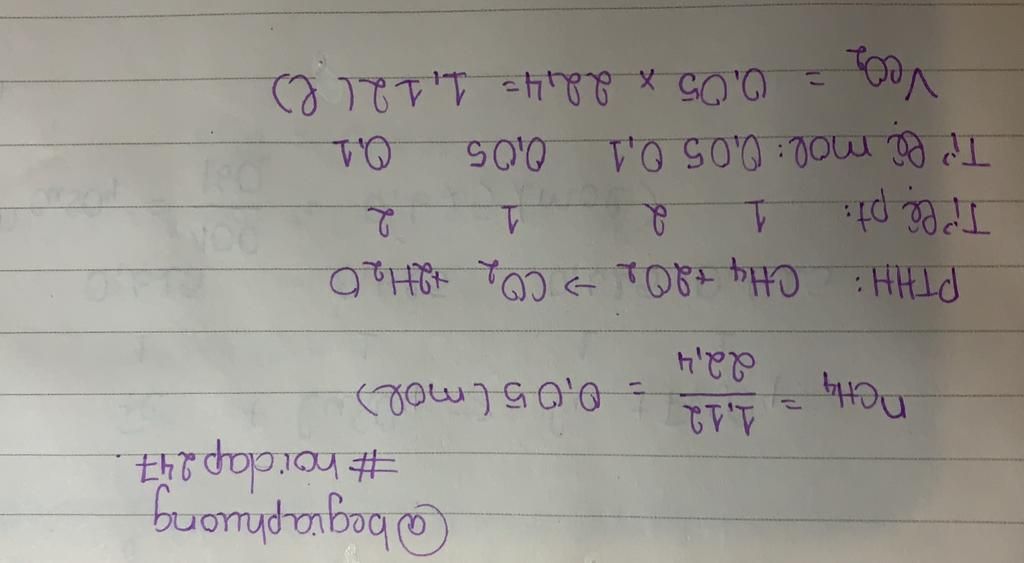 @begiaphuong
#hoidap247.
nCH₄ = 1,12/22,4 = 0,05 (mol)
PTHH: CH₄ + 2O₂ → CO₂ + 2H₂O
Tỉ lệ pt: 1 2 1 2
Tỉ lệ mol: 0,05 0,1 0,05 0,1
VCO₂ = 0,05 x 22,4 = 1,12 (l)